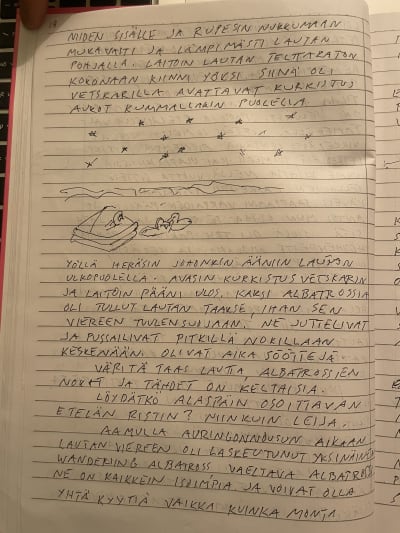 MIDEN SISÄLLE JA RUPESIN NUKKUMAAN
MUKAVASTI JA LÄMPIMÄSTI LAUTAN
POHJALLA. LAITOIN LAUTAN TELTTAKATON
KOKONAAN KIINNI YÖKSI. SIINÄ OLI
VETSKARILLA AVATTAVAT KURKISTUS
AUKOT KUMMALLAKIN PUOLELLA
YÖLLÄ HERÄSIN JOHONKIN ÄÄNIIN LAUTAN
ULKOPUOLELLA. AVASIN KURKISTUSVETSKARIN
JA LAITOIN PÄÄNI ULOS. KAKSI ALBATROSSIA
OLI TULLUT LAUTAN TAAKSE IHAN SEN
VIEREEN TUULENSUOJAAN. NE JUTTELIVAT
JA PUSSAILIVAT PITKILLÄ NOKILLAAN
KESKENÄÄN. OLIVAT AIKA SÖÖTTEJÄ.
VÄRITÄ TAAS LAUTTA ALBATROSSIEN
NOKAT JA TÄHDET ON KELTAISIA.
LÖYDÄTKÖ ALASPÄIN OSOITTAVAN
ETELÄN RISTIN? NIINKUIN LEIJA.
AAMULLA AURINGONNOUSUN AIKAAN
LAUTAN VIEREEN OLI LASKEUTUNUT YKSINÄINEN
WANDERING ALBATROSS VAELTAVA ALBATROSSI
NE ON KAIKKEIN ISOIMPIA JA VOIVAT OLLA
YHTÄ KYYTIÄ VAIKKA KUINKA MONTA